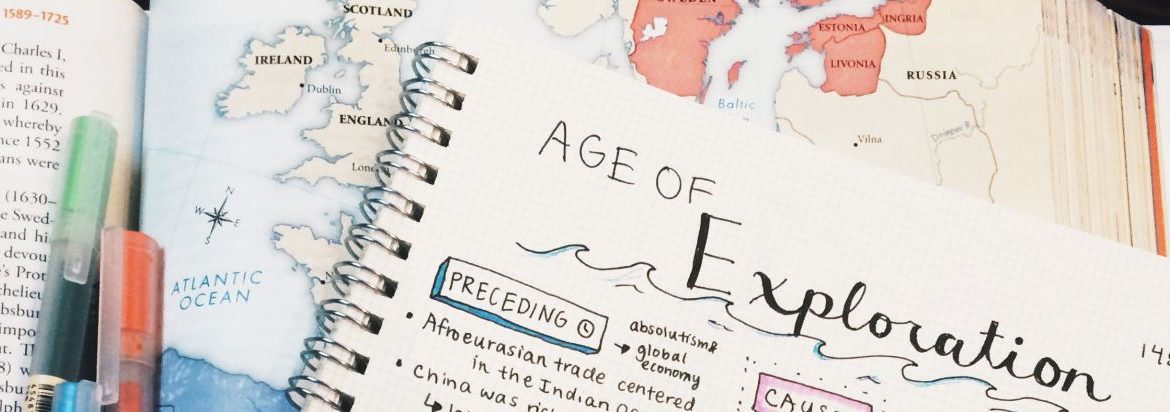 1589–1725
Charles I,
ed in this
s against
in 1629.
whereby
nce 1552
ans were
(1630–
e Swed-
and hi
devou
's Prot
chelieu
bsbur
impo
nt. T
8) w
sbu
lph
SCOTLAND
Edinburgh
IRELAND
Dublin
ENGLAND
Lond
N
W E
S
ATLANTIC
OCEAN
SWEDEN
ESTONIA
INGRIA
LIVONIA
RUSSIA
Baltic
Vilna
Dnieper R.
AGE OF
Exploration
PRECEDING
absolutism &
→ global
economy
• Afroeurasian trade centered
in the Indian
• China was
CAUS